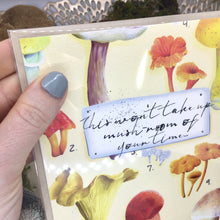 4.
this won't take up
mush-room of
your time.
2.
7.